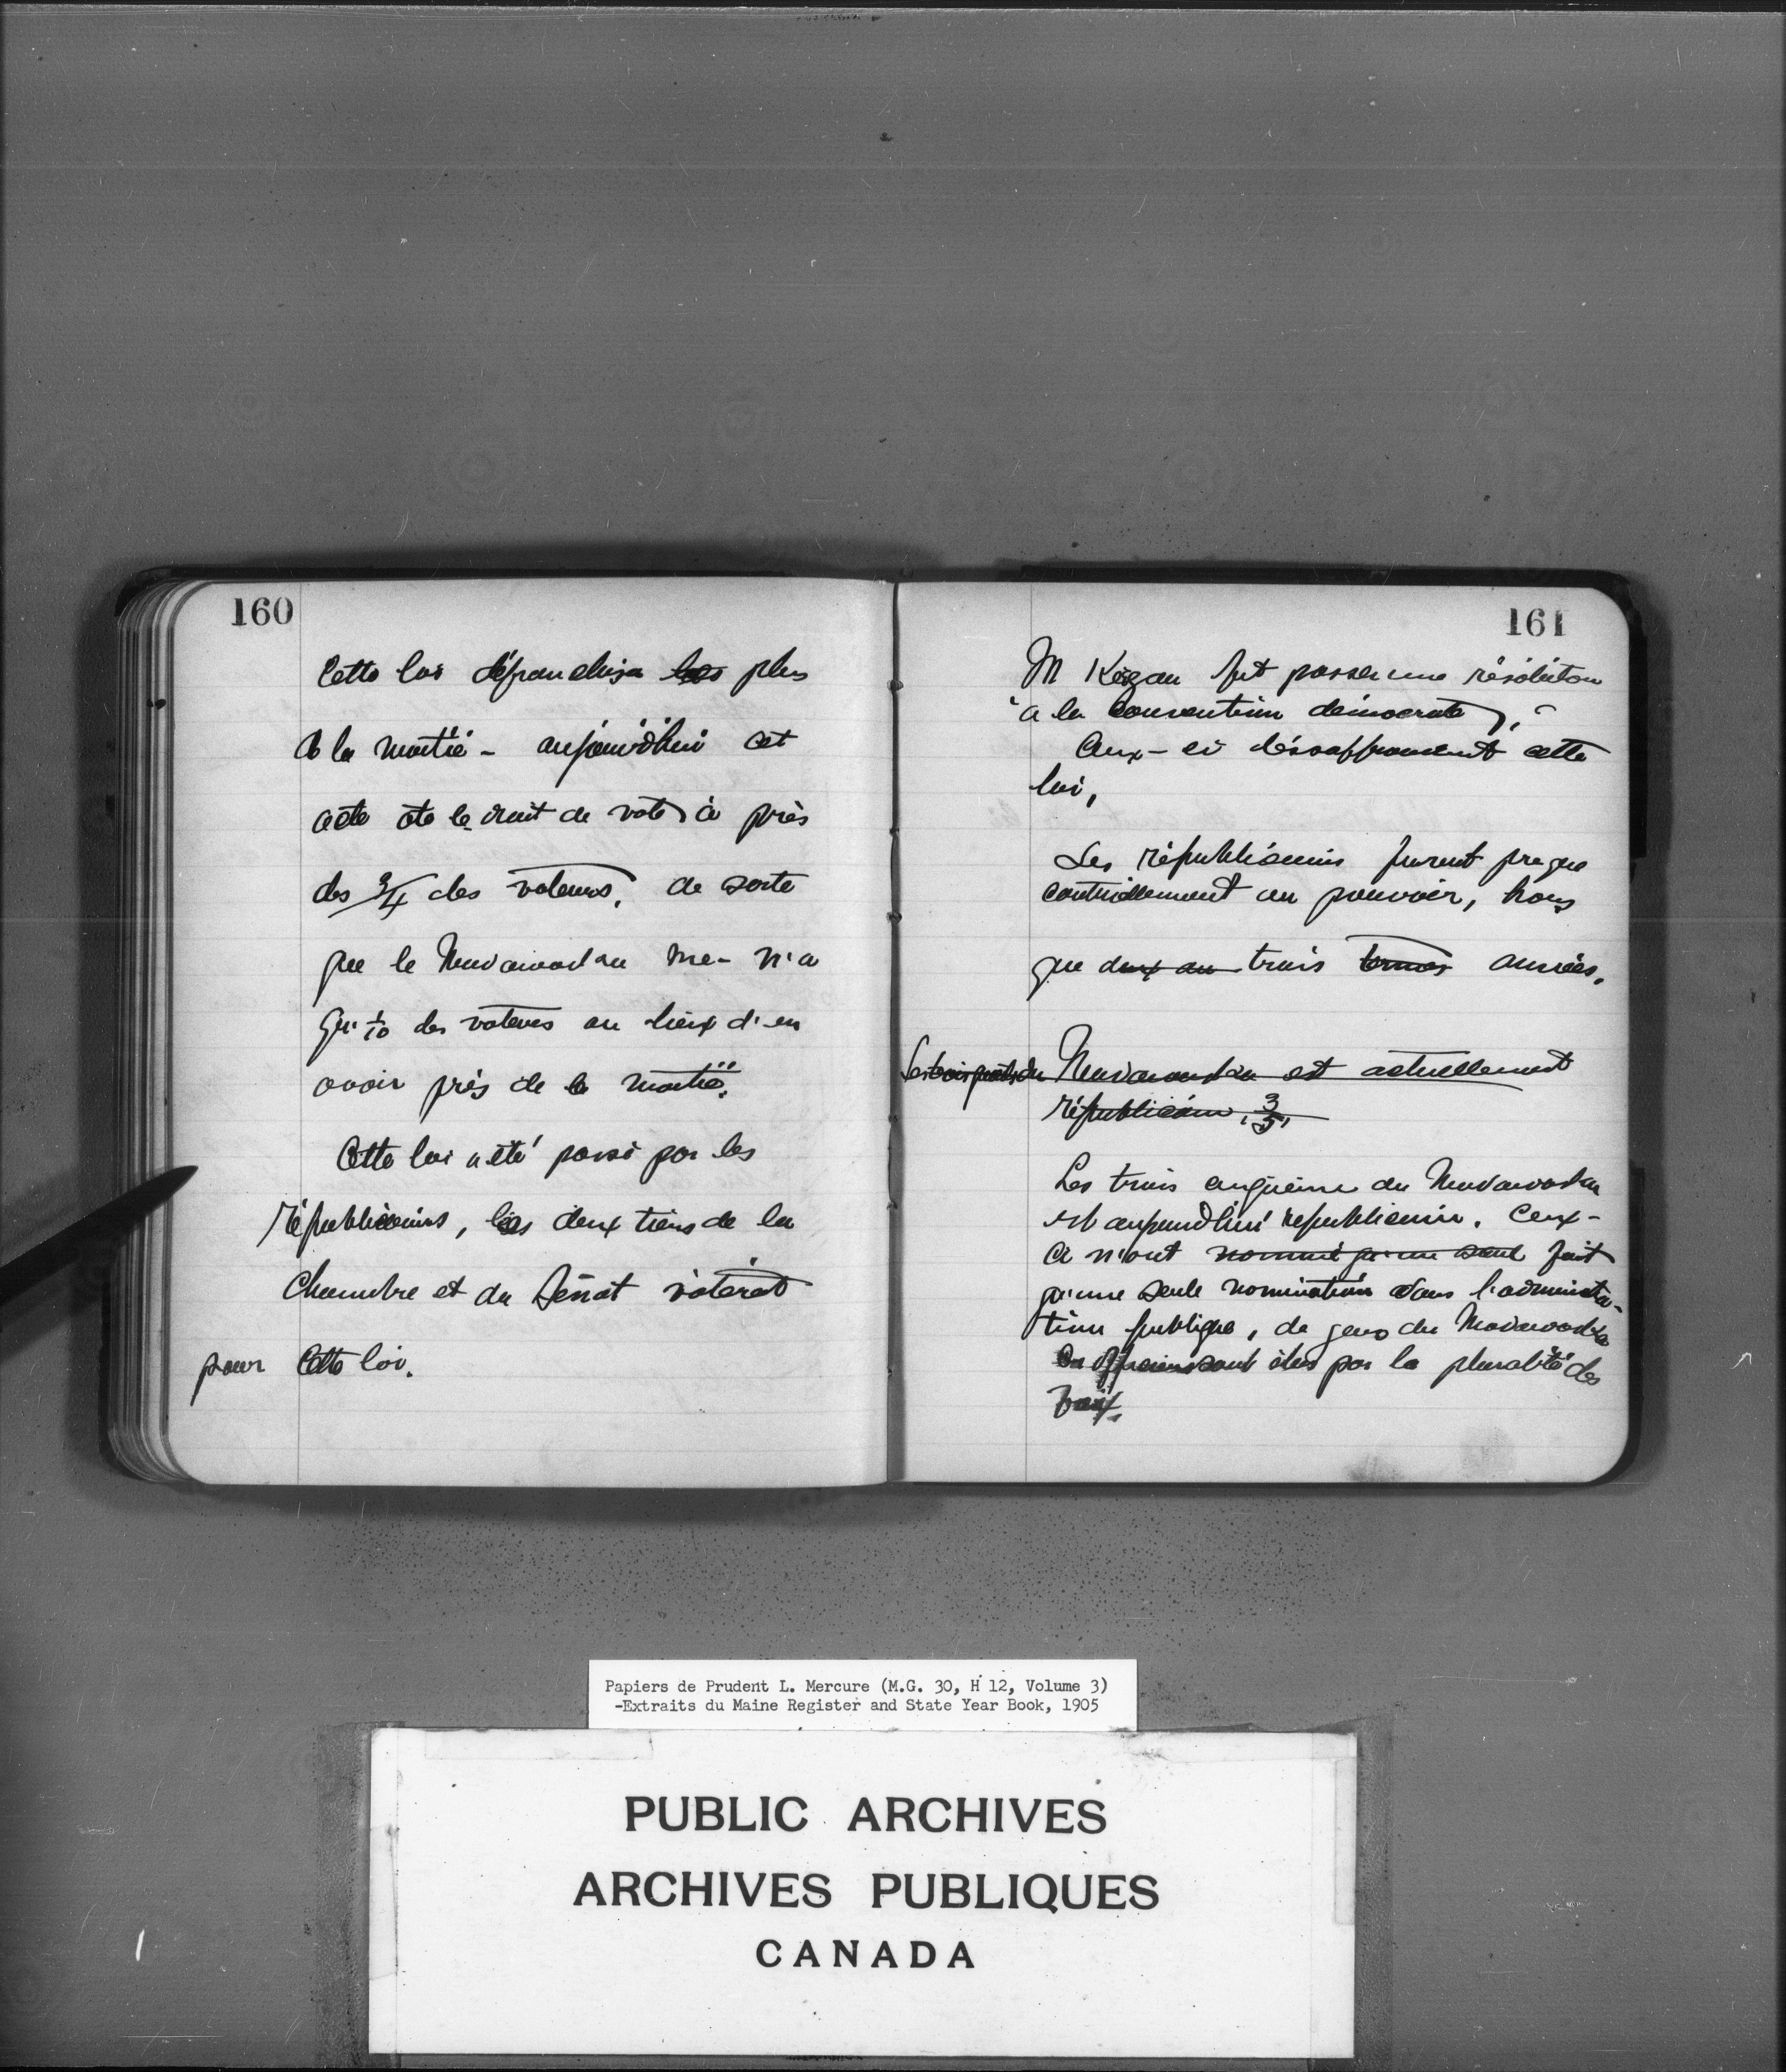 160
Cette loi défranchisa les plus
de la moitié - aujourd'hui cet
acte ote le droit de vote à près
des 3/4 des voteurs, de sorte
que le Madawaska Me- n'a
qu' 1/10 des voteurs au lieux d'en
avoir près de la moitié.
Cette loi a été passé par les
républicains, les deux tiers de la
Chambre et du Sénat votèrent
pour Cette loi.
161
M Keegan fit passer une résolution
à la Convention démocrate,
Ceux-ci désapprouvent cette
loi,
Les républicains furent presque
continellement au pouvoir, hors
que deux ou trois termes années,
Les trois quarts du Madawaska est actuellement
républicain, 3/5,
Les trois cinquième du Madawaska
est aujourd'hui republicain. Ceux-
ci n'ont nommé qu'un seul fait
qu'une seule nomination dans l'administra-
tion publique, de gens du Madawaska
officiers sont élus par la pluralité des
voix.
Papiers de Prudent L. Mercure (M.G. 30, H 12, Volume 3)
-Extraits du Maine Register and State Year Book, 1905
PUBLIC ARCHIVES
ARCHIVES PUBLIQUES
CANADA